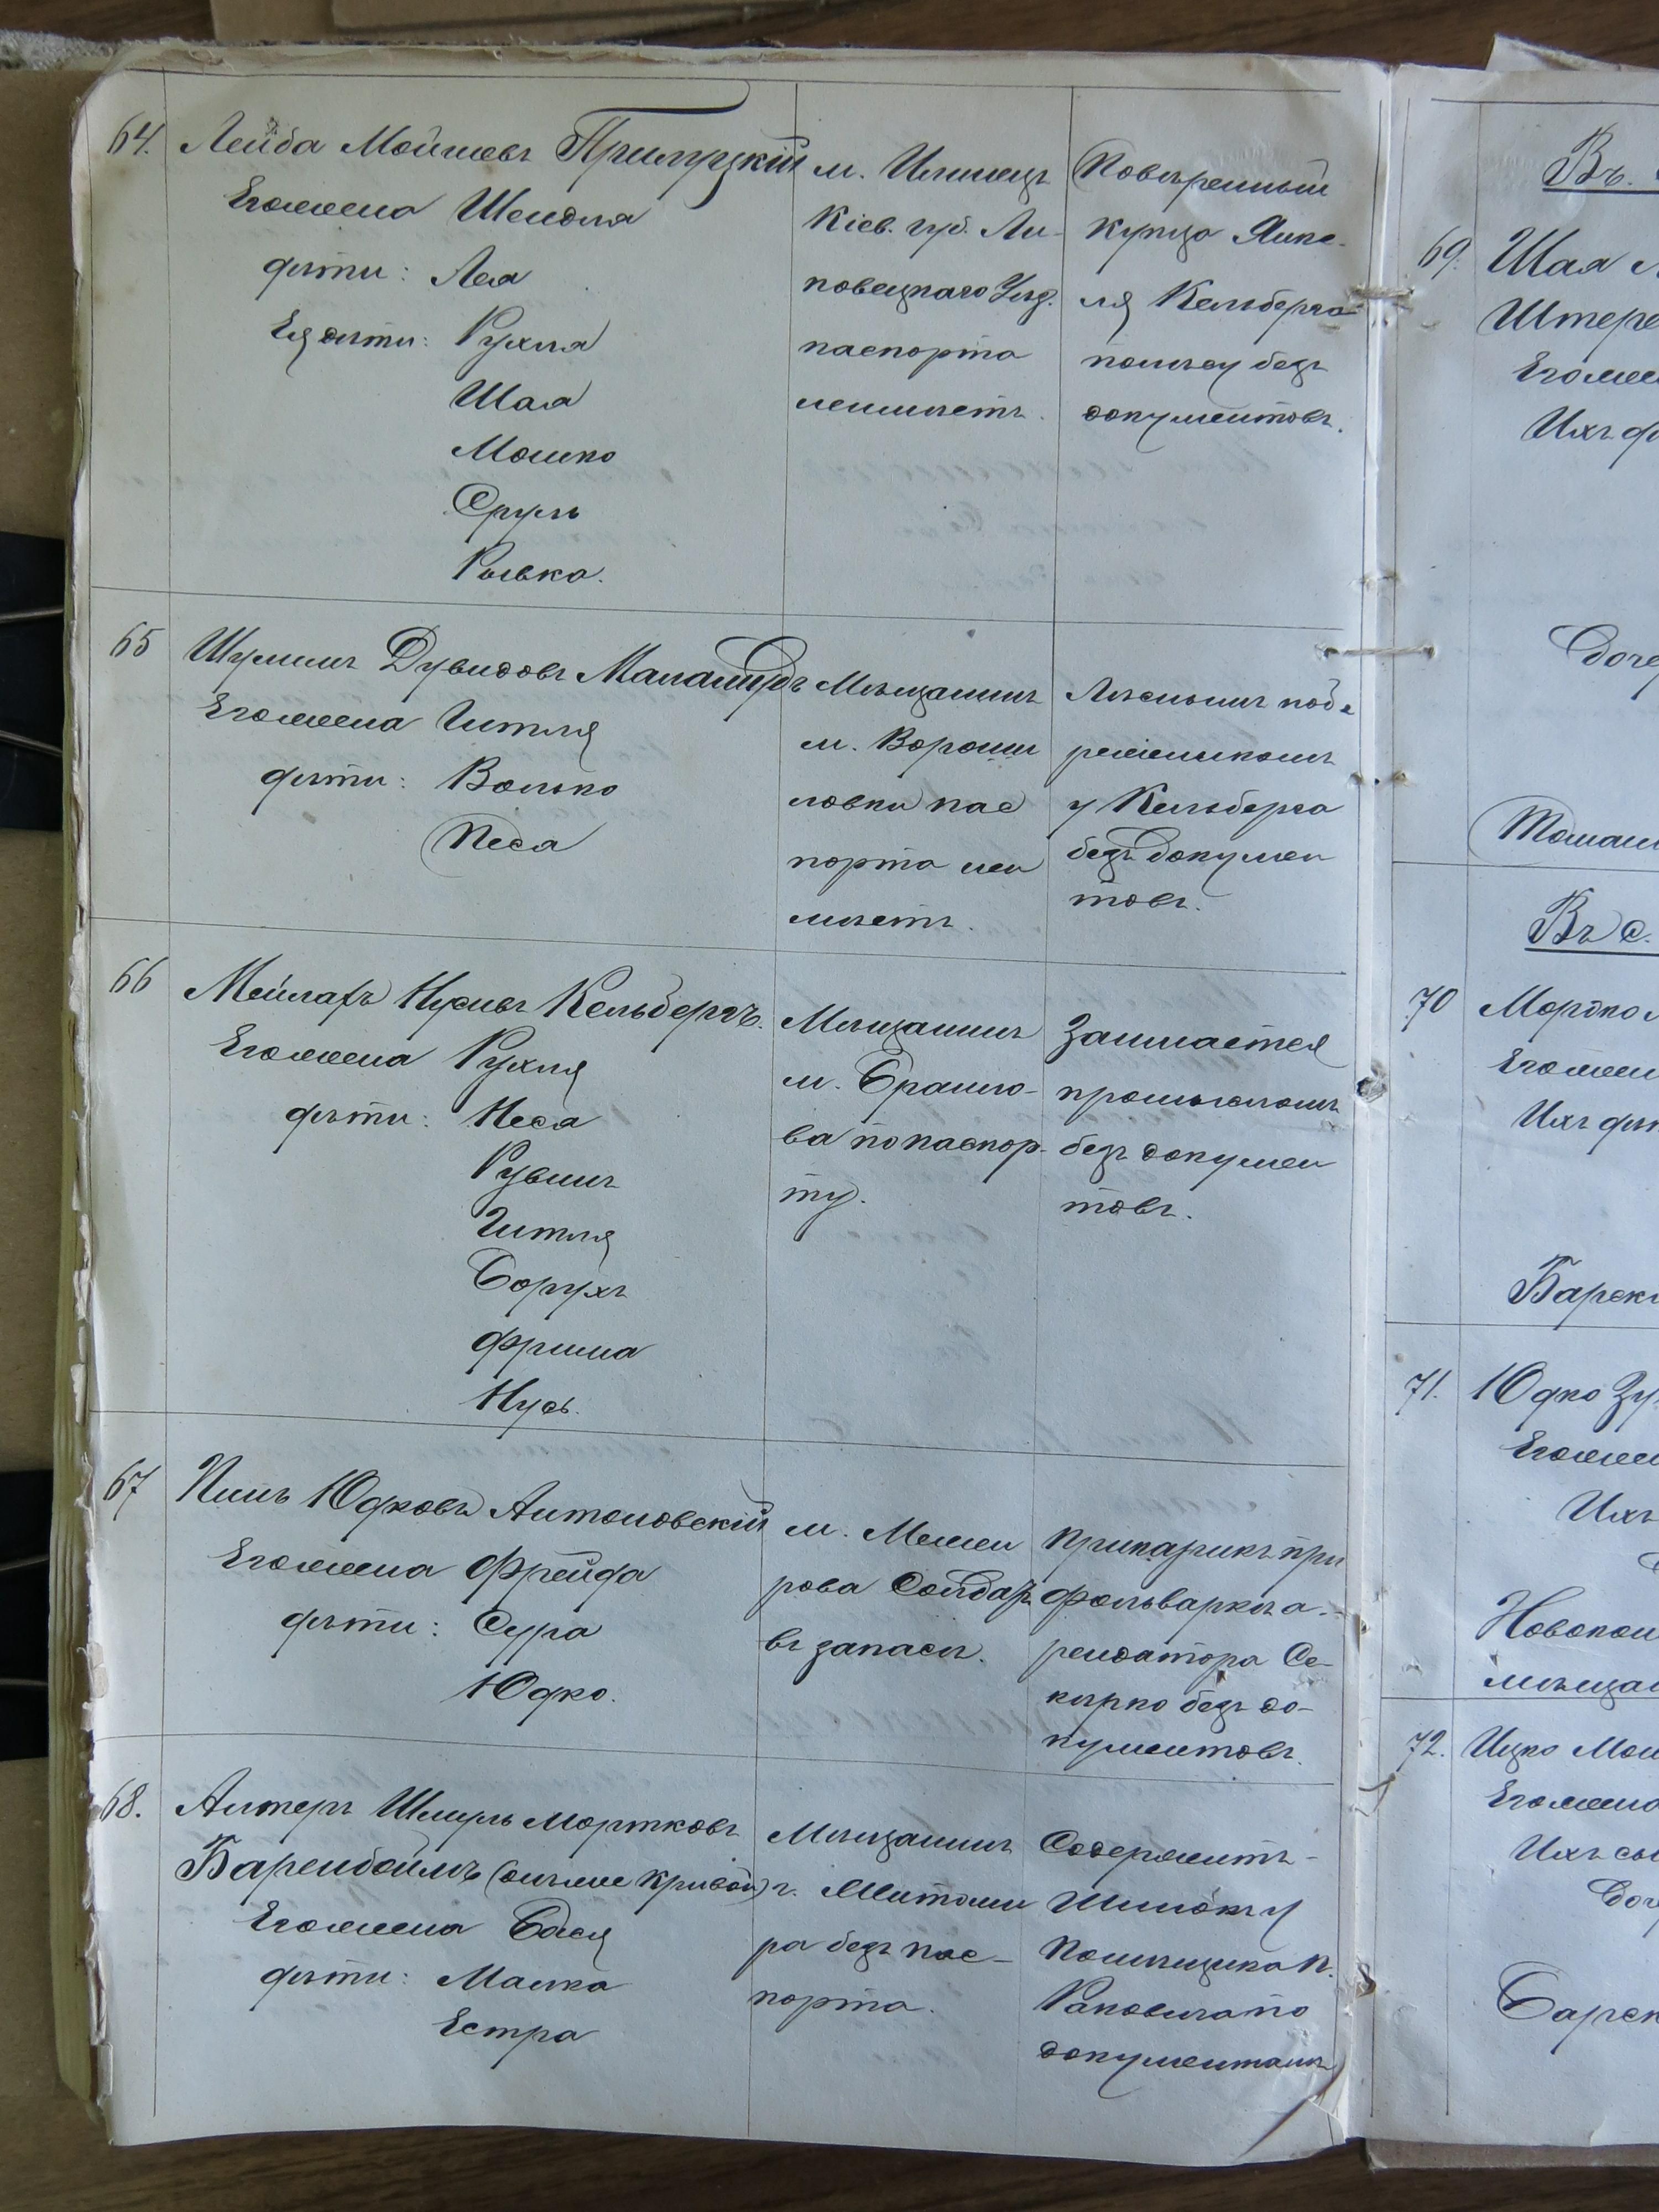 64. Лейба Мойшевъ Прилуцкій
Его жена Шендля
дѣти: Лея
Ея дѣти: Рухля
Шая
Мошко
Сруль
Рывка.
м. Илинецъ
Кіев. губ. Ли-
повецкаго Уѣз.
паспорта
неимѣетъ.
Повѣренный
купца Янке-
ля Кельберга
помѣсу безъ
документовъ.
65 Шулимъ Дувидовъ
Его жена Гитля
дѣти: Волько
Песа
Мѣщанинъ
м. Вороши
ловки пас
порта неи
мѣетъ.
Лѣснымъ подѣ
режникомъ
у Кельберга
безъ докумен
товъ.
66 Мейлахъ Нусивъ Кельбергъ.
Его жена Рухля
дѣти: Неса
Рувинъ
Гитля
Борухъ
Фрима
Нусь.
Мѣщанинъ
м. Браило-
ва по паспор-
ту.
Занимается
промысломъ
безъ докумен
товъ.
67 Пинь Юдковъ Антоновскій
Его жена Фрейда
дѣти: Сура
Юдко.
м. Межи
рова Солдатъ
въ запасѣ.
Прикащикъ при
фольваркѣ а-
рендатора Се-
кырко безъ до-
кументовъ.
68. Алтеръ Шмуль Мортковъ
Баренбоймъ (онъже Кривой)
Его жена Бася
дѣти: Малка
Естра
Мѣщанинъ
г. Житоми
ра безъ пас-
порта.
Содержитъ
Шинокъ у
Помѣщика П.
Раковича по
документамъ
Въ.
69. Шая
Штере
Его жен
Ихъ дѣ
Доче
Томаш
Въ с.
70 Мордко
Его жен
Ихъ дѣт
Барск
71. Юдко Зу
Его жен
Ихъ
Новокон
мѣща
72. Ицко Мош
Его жена
Ихъ сы
Доч
Барск